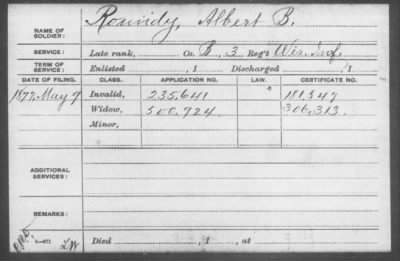 NAME OF SOLDIER: Roundy, Albert B.
SERVICE: Late rank, Co. B, 3 Reg't Wis. Inf.
TERM OF SERVICE: Enlisted , 1 Discharged , 1
DATE OF FILING. CLASS. APPLICATION NO. LAW. CERTIFICATE NO.
1877, May 9 Invalid, 235,641 181,547
Widow, 500,924 306,313
Minor,
ADDITIONAL SERVICES:
REMARKS:
Died , 1 , at